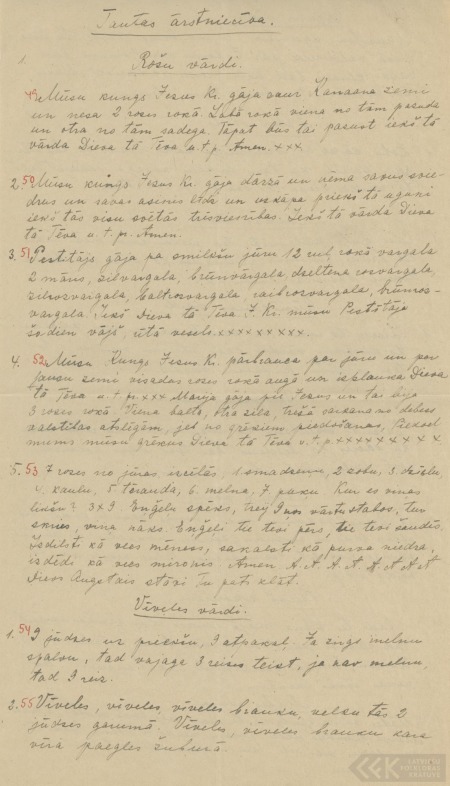 Tautas ārstniecība.
1. Rošu vārdi.
49 Mūsu kungs Jesus Kr. gāja caur Kanaana zemi
un nesa 2 roses rokā. Labā rokā viena no tām pasuda
un otra no tām sadega. Tāpat būs tai pasust iekš tā
vārda Dieva tā Tēva u.t.p. Amen. xxx
2. 50 Mūsu kungs Jesus Kr. gāja dārzā un ņēma savus svie-
drus un savas asenis līdz un priekš tā uguni
iekš tās visu svētās trīsvienības. Iekš tā vārda Dieva
tā Tēva u.t.pr. Amen.
3. 51 Pestītājs gāja pa smilkšu jūru 12 rokā vargala
2 māns, zilvargala, brūnvārgala dzeltena rosvargala,
zilrosvargala, baltrosvargala, raibrosvargala, brūnros-
vargala. Iekš Dieva tā Tēva J. Kr. mūsu Pestītāja
šodien vājš, rītā vesels. xxxxxxxx
4. 52 Mūsu Kungs Jesus Kr. pārbrauca par jūru un par
zemi visādas roses rokā augā un Dieva
tā Tēva u.t.pr. xxx Marija gāja pie Jesus un tai bija
3 roses rokā. Viena balta, otra zila, trešā sarkana no debess
valstības atslēgām, jeb no grēkiem piedošanas, Piedod
mums mūsu grēkus Dieva tā Tēva u.t.p. xxxxxxxxx
5. 53 7 roses no jūras izcēlās, 1 smadzeņu, 2 zobu, 3 dzīslu,
4. kaulu, 5 tērauda, 6. melna, 7 puķu. Kur es viņas
likšu? 3x9 Eņģeļu spēks, trej 9 vārtu stabos, tur
skries, viņa nāks. Eņģeļi tie tevi pērs, tie tevi šaudīs.
Izdilsti kā vecs mēness, sakalsti kā purva niedra,
izdēdi kā vecs mironis. Amen A. A. A. A. A A A A
Dievs Augstais stāvi Tu pats klāt.
Vīveles vārdi.
1. 54 9 jūdzes uz priekšu, 9 atpakaļ. Ja zirgs melnu
spalvu, tad vajaga 3 reises teist, ja nav melnu,
tad 9 reiz.
2. 55 Vīveles, vīveles, vīveles brauku, velku tās 2
jūdzes garumā. Vīveles, vīveles brauku kara
vīra paegles žuburā.
LATVIEŠU FOLKLORAS KRĀTUVE